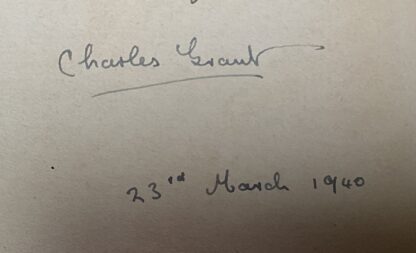 Charles Grant
23rd March 1940